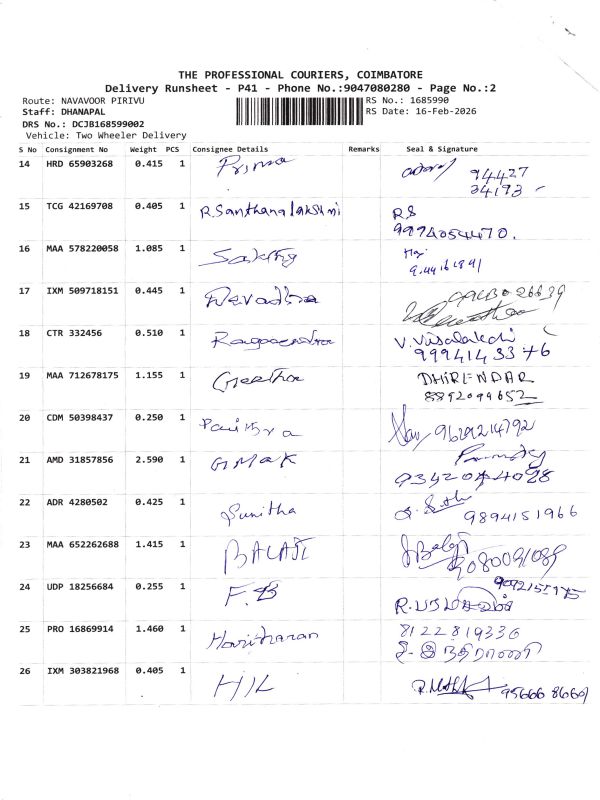 THE PROFESSIONAL COURIERS, COIMBATORE
Delivery Runsheet - P41 - Phone No.:9047080280 - Page No.:2
Route: NAVAVOOR PIRIVU RS No.: 1685990
Staff: DHANAPAL RS Date: 16-Feb-2026
DRS No.: DCJB168599002
Vehicle: Two Wheeler Delivery
S No Consignment No Weight PCS Consignee Details Remarks Seal & Signature
14 HRD 65903268 0.415 1 94427
34173
15 TCG 42169708 0.405 1 R.Santhanalakshmi RS
9994054470.
16 MAA 578220058 1.085 1
17 IXM 509718151 0.445 1
18 CTR 332456 0.510 1 V. Visalakchi
99941433 46
19 MAA 712678175 1.155 1 Geetha DHIRENDAR
8892099652
20 CDM 50398437 0.250 1 Pavithra 9629214792
21 AMD 31857856 2.590 1 GMAK
22 ADR 4280502 0.425 1 Sunitha
9894151966
23 MAA 652262688 1.415 1 BALAJI J Balaji
9080091089
24 UDP 18256684 0.255 1 F.B 9092155175
25 PRO 16869914 1.460 1 Hariharan 8122819336
இந்திராணி
26 IXM 303821968 0.405 1 HIL